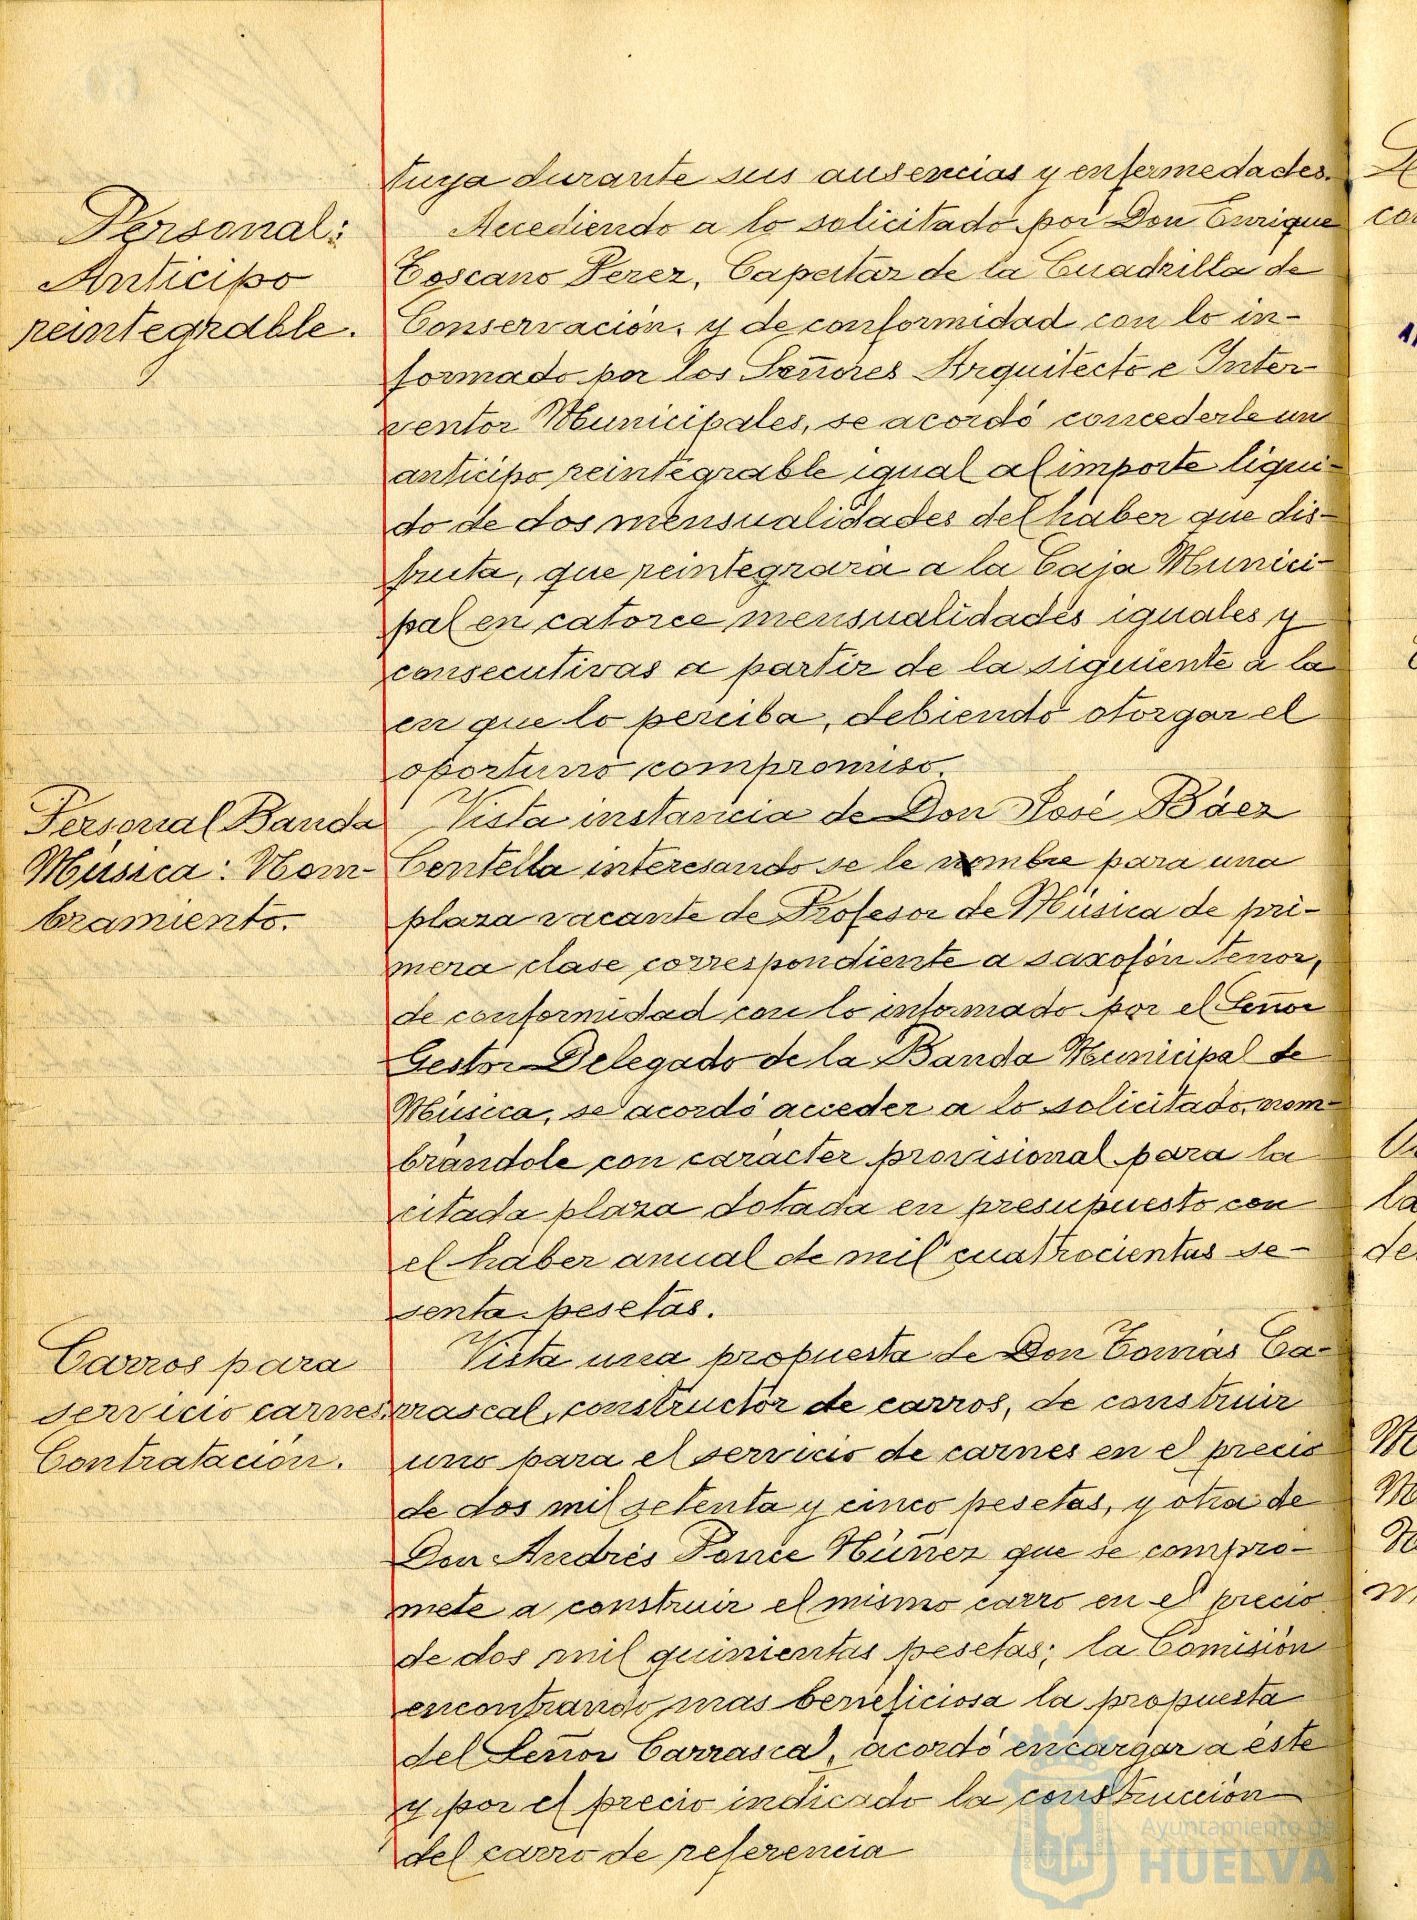 tuya durante sus ausencias y enfermedades.
Personal:
Anticipo
reintegrable.
Accediendo a lo solicitado por Don Enrique
Toscano Perez, Capataz de la Cuadrilla de
Conservación, y de conformidad con lo in-
formado por los Señores Arquitecto e Inter-
ventor Municipales, se acordó concederle un
anticipo reintegrable igual al importe liqui-
do de dos mensualidades del haber que dis-
fruta, que reintegrará a la Caja Munici-
pal en catorce mensualidades iguales y
consecutivas a partir de la siguiente a la
en que lo perciba, debiendo otorgar el
oportuno compromiso.
Personal Banda
Música: Nom-
bramiento.
Vista instancia de Don José Báez
Centella interesando se le nombre para una
plaza vacante de Profesor de Música de pri-
mera clase correspondiente a saxofón tenor,
de conformidad con lo informado por el Señor
Gestor Delegado de la Banda Municipal de
Música, se acordó acceder a lo solicitado, nom-
brándole con carácter provisional para la
citada plaza dotada en presupuesto con
el haber anual de mil cuatrocientas se-
senta pesetas.
Carros para
servicio carnes.
Contratación.
Vista una propuesta de Don Tomás Ca-
rrascal, constructor de carros, de construir
uno para el servicio de carnes en el precio
de dos mil setenta y cinco pesetas, y otra de
Don Andrés Ponce Núñez que se compro-
mete a construir el mismo carro en el precio
de dos mil quinientas pesetas; la Comisión
encontrando mas beneficiosa la propuesta
del Señor Carrascal, acordó encargar a éste
y por el precio indicado la construcción
del carro de referencia
Ayuntamiento de
HUELVA